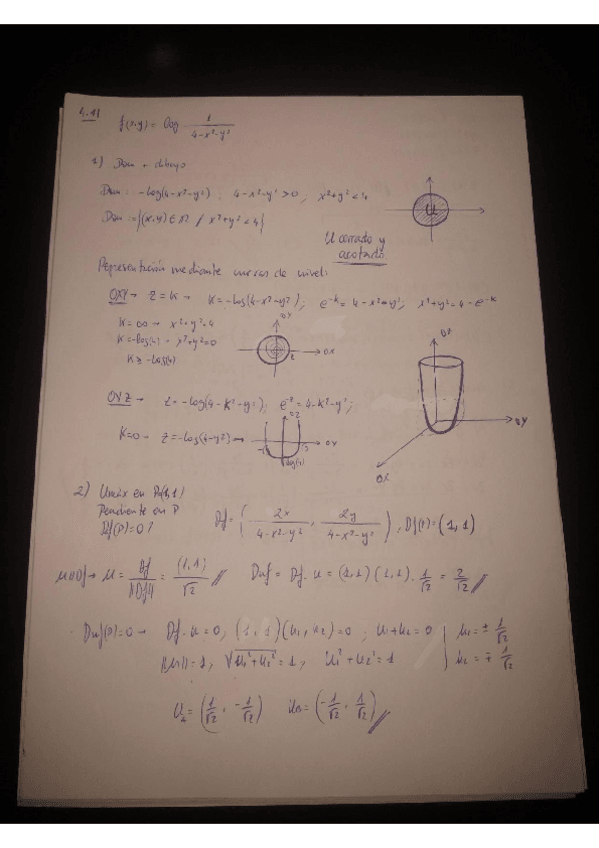 4.11
f(x,y) = log 1/(4-x²-y²)
1) Dom + dibujo
Dom: -log(4-x²-y²) : 4-x²-y² > 0 ; x²+y² < 4
Dom := {(x,y) ∈ / x²+y² < 4}
U
U cerrado y
acotado.
Representación mediante curvas de nivel:
OXY → z = K → K = -log(4-x²-y²) ; e^-K = 4-x²-y² ; x²+y² = 4-e^-K
K = ∞ → x²+y² = 4
K = -log(4) → x²+y² = 0
K ≥ -log(4)
OY
OX
2
OYZ → z = -log(4-K²-y²) ; e^-z = 4-K²-y² ;
K=0 → z = -log(4-y²) →
OZ
OY
OZ
OY
OX
2) Umáx en P(1,1)
Pendiente en P
Df(P)=0?
Df = ( 2x/(4-x²-y²) , 2y/(4-x²-y²) ) , Df(P) = (1,1)
u = Df/||Df|| = (1,1)/√2 // Duf = Df · u = (1,1)(1,1) · 1/√2 = 2/√2 //
Duf(P)=0 → Df · u = 0 , (1,1)(u₁,u₂) = 0 ; u₁+u₂ = 0 | u₁ = ± 1/√2
||u|| = 1 , √(u₁²+u₂²) = 1 , u₁²+u₂² = 1 | u₂ = ∓ 1/√2
= (1/√2 , -1/√2) = (-1/√2 , 1/√2) //